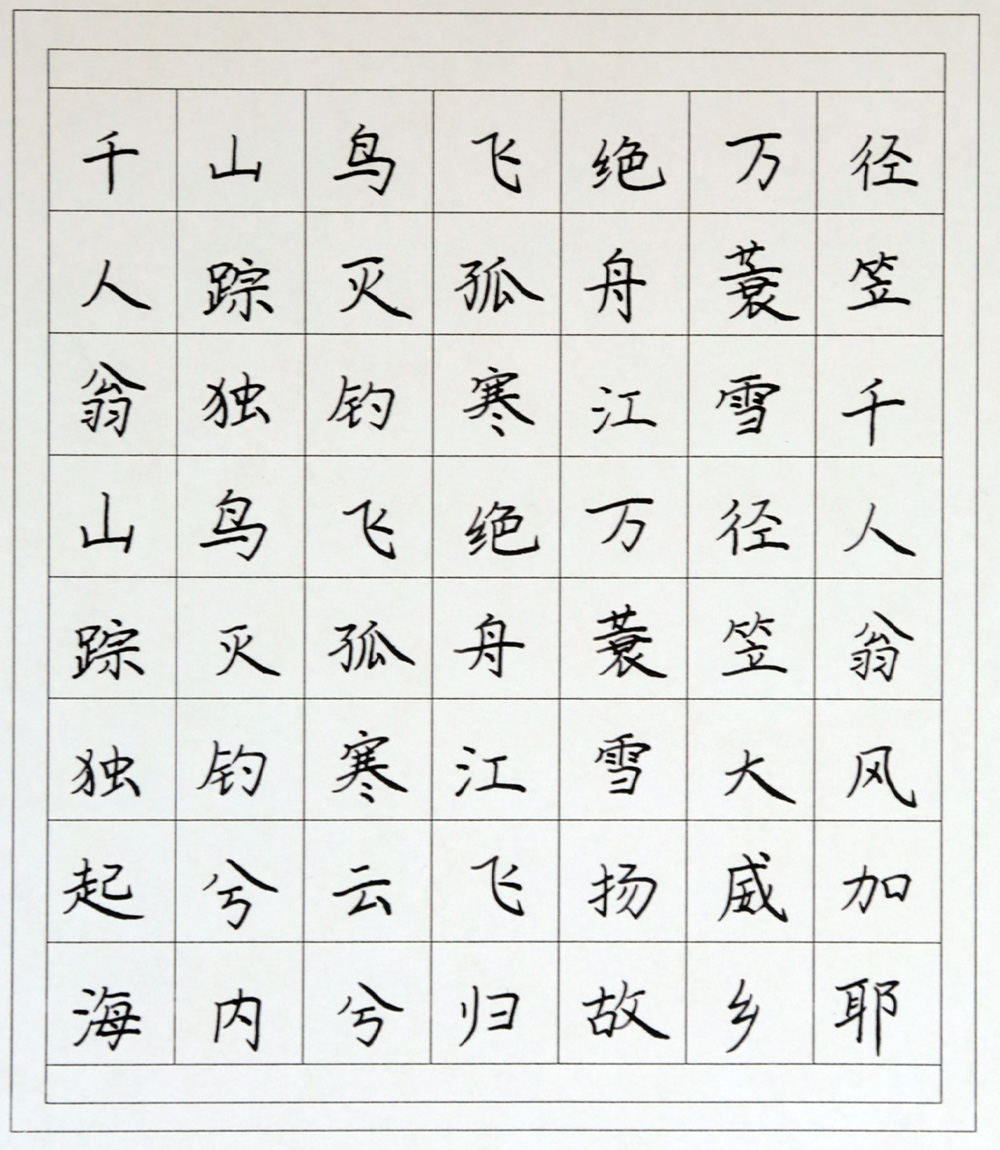 千山鸟飞绝万径
人踪灭孤舟蓑笠
翁独钓寒江雪千
山鸟飞绝万径人
踪灭孤舟蓑笠翁
独钓寒江雪大风
起兮云飞扬威加
海内兮归故乡耶